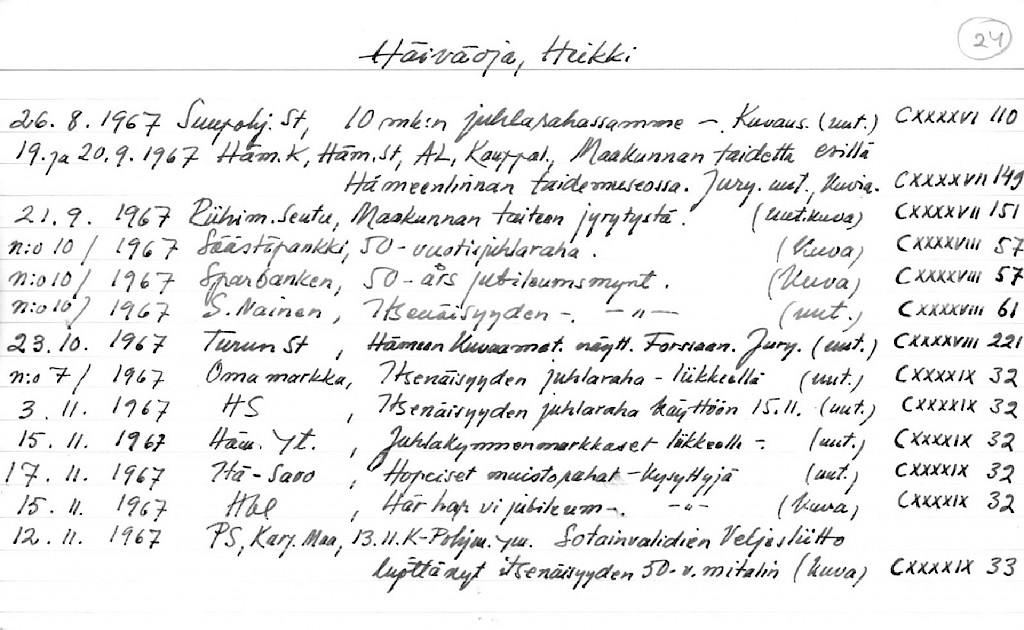 24
Häiväoja, Heikki
26.8.1967 Suupohj. St, 10 mk:n juhlarahassamme –. Kuvaus. (uut.) CXXXXVI 110
19. ja 20.9.1967 Häm. K, Häm. St, AL, Kauppal., Maakunnan taidetta esillä
Hämeenlinnan taidemuseossa. Jury. uut., kuvia. CXXXXVII 149
21.9. 1967 Riihim. Seutu, Maakunnan taiteen jyrytystä. (uut. kuva) CXXXXVII 151
n:o 10/ 1967 Säästöpankki, 50-vuotisjuhlaraha. (Kuva) CXXXXVIII 57
n:o 10/ 1967 Sparbanken, 50-års jubileumsmynt. (Kuva) CXXXXVIII 57
n:o 10/ 1967 S. Nainen, Itsenäisyyden –. –"– (uut.) CXXXXVIII 61
23.10. 1967 Turun St, Hämeen Kuvaamat. näytt. Forssaan. Jury. (uut.) CXXXXVIII 221
n:o 7/ 1967 Oma markka, Itsenäisyyden juhlaraha – liikkeellä (uut.) CXXXXIX 32
3.11. 1967 HS, Itsenäisyyden juhlaraha käyttöön 15.11. (uut.) CXXXXIX 32
15.11. 1967 Häm. Yt., Juhlakymmenmarkkaset liikkeelle –. (uut.) CXXXXIX 32
17.11. 1967 Itä-Savo, Hopeiset muistorahat – kysyttyjä (uut.) CXXXXIX 32
15.11. 1967 Hbl, Här har vi jubileum –. –"– (Kuva) CXXXXIX 32
12.11. 1967 PS, Karj. Maa, 13.11. K-Pohjm. ym. Sotainvalidien Veljesliitto
lyöttänyt itsenäisyyden 50-v. mitalin (Kuva) CXXXXIX 33